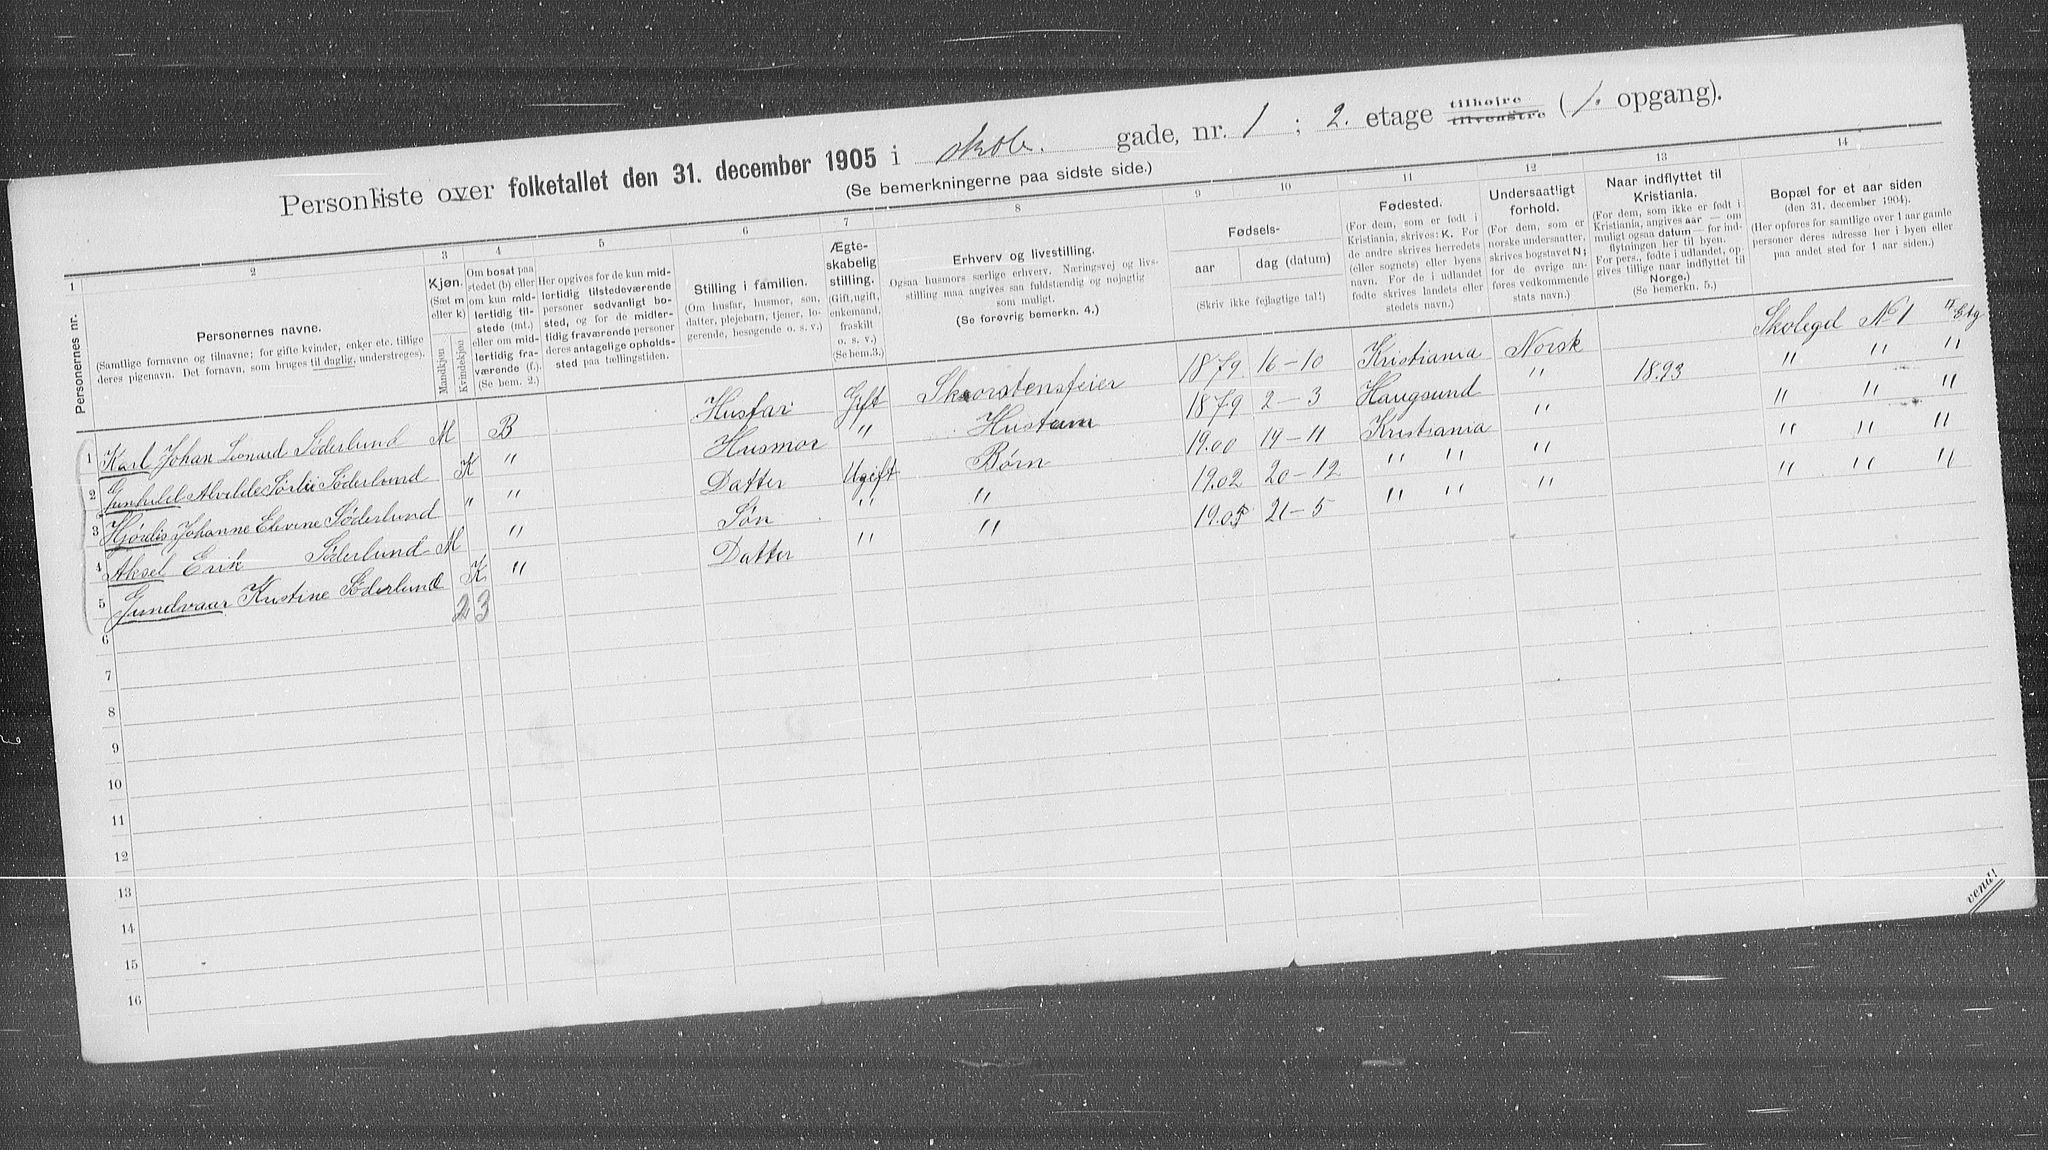 Personliste over folketallet den 31. december 1905 i Skole. gade, nr. 1 ; 2. etage tilhøjre tilvenstre ( 1. opgang).
(Se bemerkningerne paa sidste side.)
1 2 3 4 5 6 7 8 9 10 11 12 13 14
Personernes nr.
Personernes navne.
(Samtlige fornavne og tilnavne; for gifte kvinder, enker etc. tillige
deres pigenavn. Det fornavn, som bruges til daglig, understreges).
Kjøn.
(Sæt m
eller k)
Mandkjøn
Kvindekjøn
Om bosat paa
stedet (b) eller
om kun mid-
lertidig til-
stede (mt.)
eller om mid-
lertidig fra-
værende (f.).
(Se bem. 2.)
Her opgives for de kun mid-
lertidig tilstedeværende
personer sedvanligt bo-
sted, og for de midler-
tidig fraværende personer
deres antagelige opholds-
sted paa tællingstiden.
Stilling i familien.
(Om husfar, husmor, søn,
datter, plejebarn, tjener, lo-
gerende, besøgende o. s. v.)
Ægte-
skabelig
stilling.
(Gift, ugift,
enkemand,
fraskilt
o. s. v.)
(Se bem.3.)
Erhverv og livestilling.
Ogsaa husmors særlige erhverv. Næringsvej og livs-
stilling maa angives saa fuldstændig og nøjagtig
som muligt.
(Se forøvrig bemerkn. 4.)
Fødsels-
aar
dag (datum)
(Skriv ikke fejlagtige tal!)
Fødested.
(For dem, som er født i
Kristiania, skrives: K. For
de andre skrives herredets
(eller sognets) eller byens
navn. For de i udlandet
fødte skrives landets eller
stedets navn.)
Undersaatligt
forhold.
(For dem, som er
norske undersaatter,
skrives bogstavet N;
for de øvrige an-
føres vedkommende
stats navn.)
Naar indflyttet til
Kristiania.
(For dem, som ikke er født i
Kristiania, angives aar — om
muligt ogsaa datum — for ind-
flytningen her til byen.
For pers., fødte i udlandet, op-
gives tillige naar indflyttet til
Norge.)
(Se bemerkn. 5.)
Bopæl for et aar siden
(den 31. december 1904).
(Her opføres for samtlige over 1 aar gamle
personer deres adresse her i byen eller
paa andet sted for 1 aar siden.)
1 Karl Johan Leonard Söderlund M B Husfar Gift Skorstensfeier 1879 16-10 Kristiania Norsk Skolegd No 1 " Etg
2 Gunhild Alvilde Sørlie Söderlund K " Husmor " Hustum 1879 2-3 Haugsund " 1893 " " "
3 Hjördis Johanne Elevine Söderlund " " Datter Ugift Børn 1900 14-11 Kristiania " " " "
4 Aksel Erik Söderlund M " Søn " " 1902 20-12 " " " " " "
5 Gundvaar Kristine Söderlund K " Datter " " 1905 21-5 " " " " " "
2 3
6
7
8
9
10
11
12
13
14
15
16
vend!